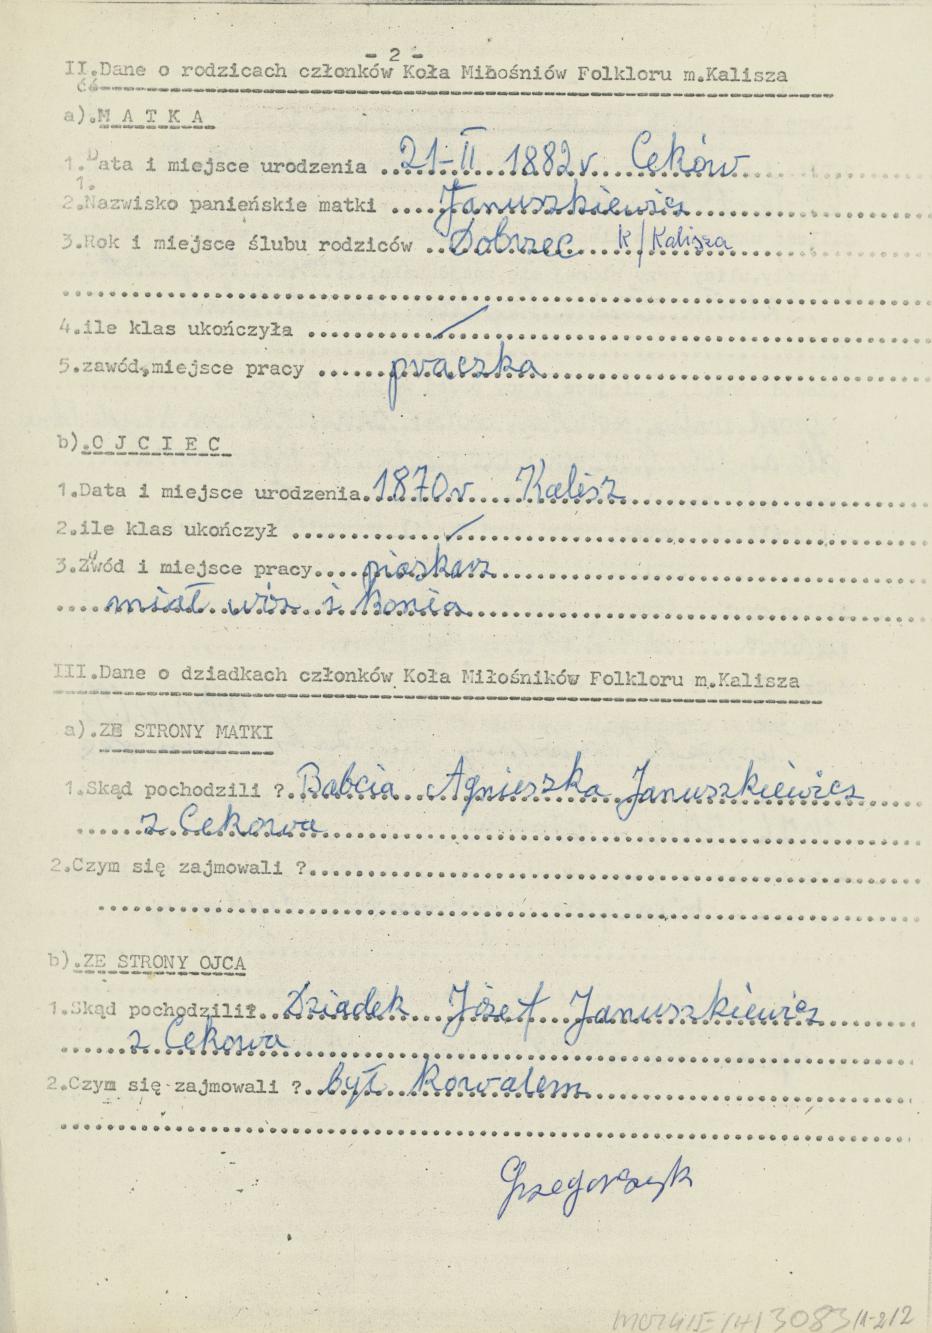 - 2 -
II.Dane o rodzicach członków Koła Miłośniów Folkloru m.Kalisza
a).M A T K A
1.Data i miejsce urodzenia ..21-II 1882r. Ceków
2.Nazwisko panieńskie matki ....Januszkiewicz
3.Rok i miejsce ślubu rodziców ..Dobrzec k/Kalisza
4.ile klas ukończyła ........../
5.zawód,miejsce pracy ......praczka
b).O J C I E C
1.Data i miejsce urodzenia.1870r.... Kalisz
2.ile klas ukończył ............/
3.Zawód i miejsce pracy....piaskarz
....miał wóz i konia
III.Dane o dziadkach członków Koła Miłośników Folkloru m.Kalisza
a).ZE STRONY MATKI
1.Skąd pochodzili ?.Babcia Agnieszka Januszkiewicz
......z Cekowa
2.Czym się zajmowali ?.
b).ZE STRONY OJCA
1.Skąd pochodzili?..Dziadek Józef Januszkiewicz
......z Cekowa
2.Czym się zajmowali ?..był kowalem
Grzegorczyk
3083/1-2/2